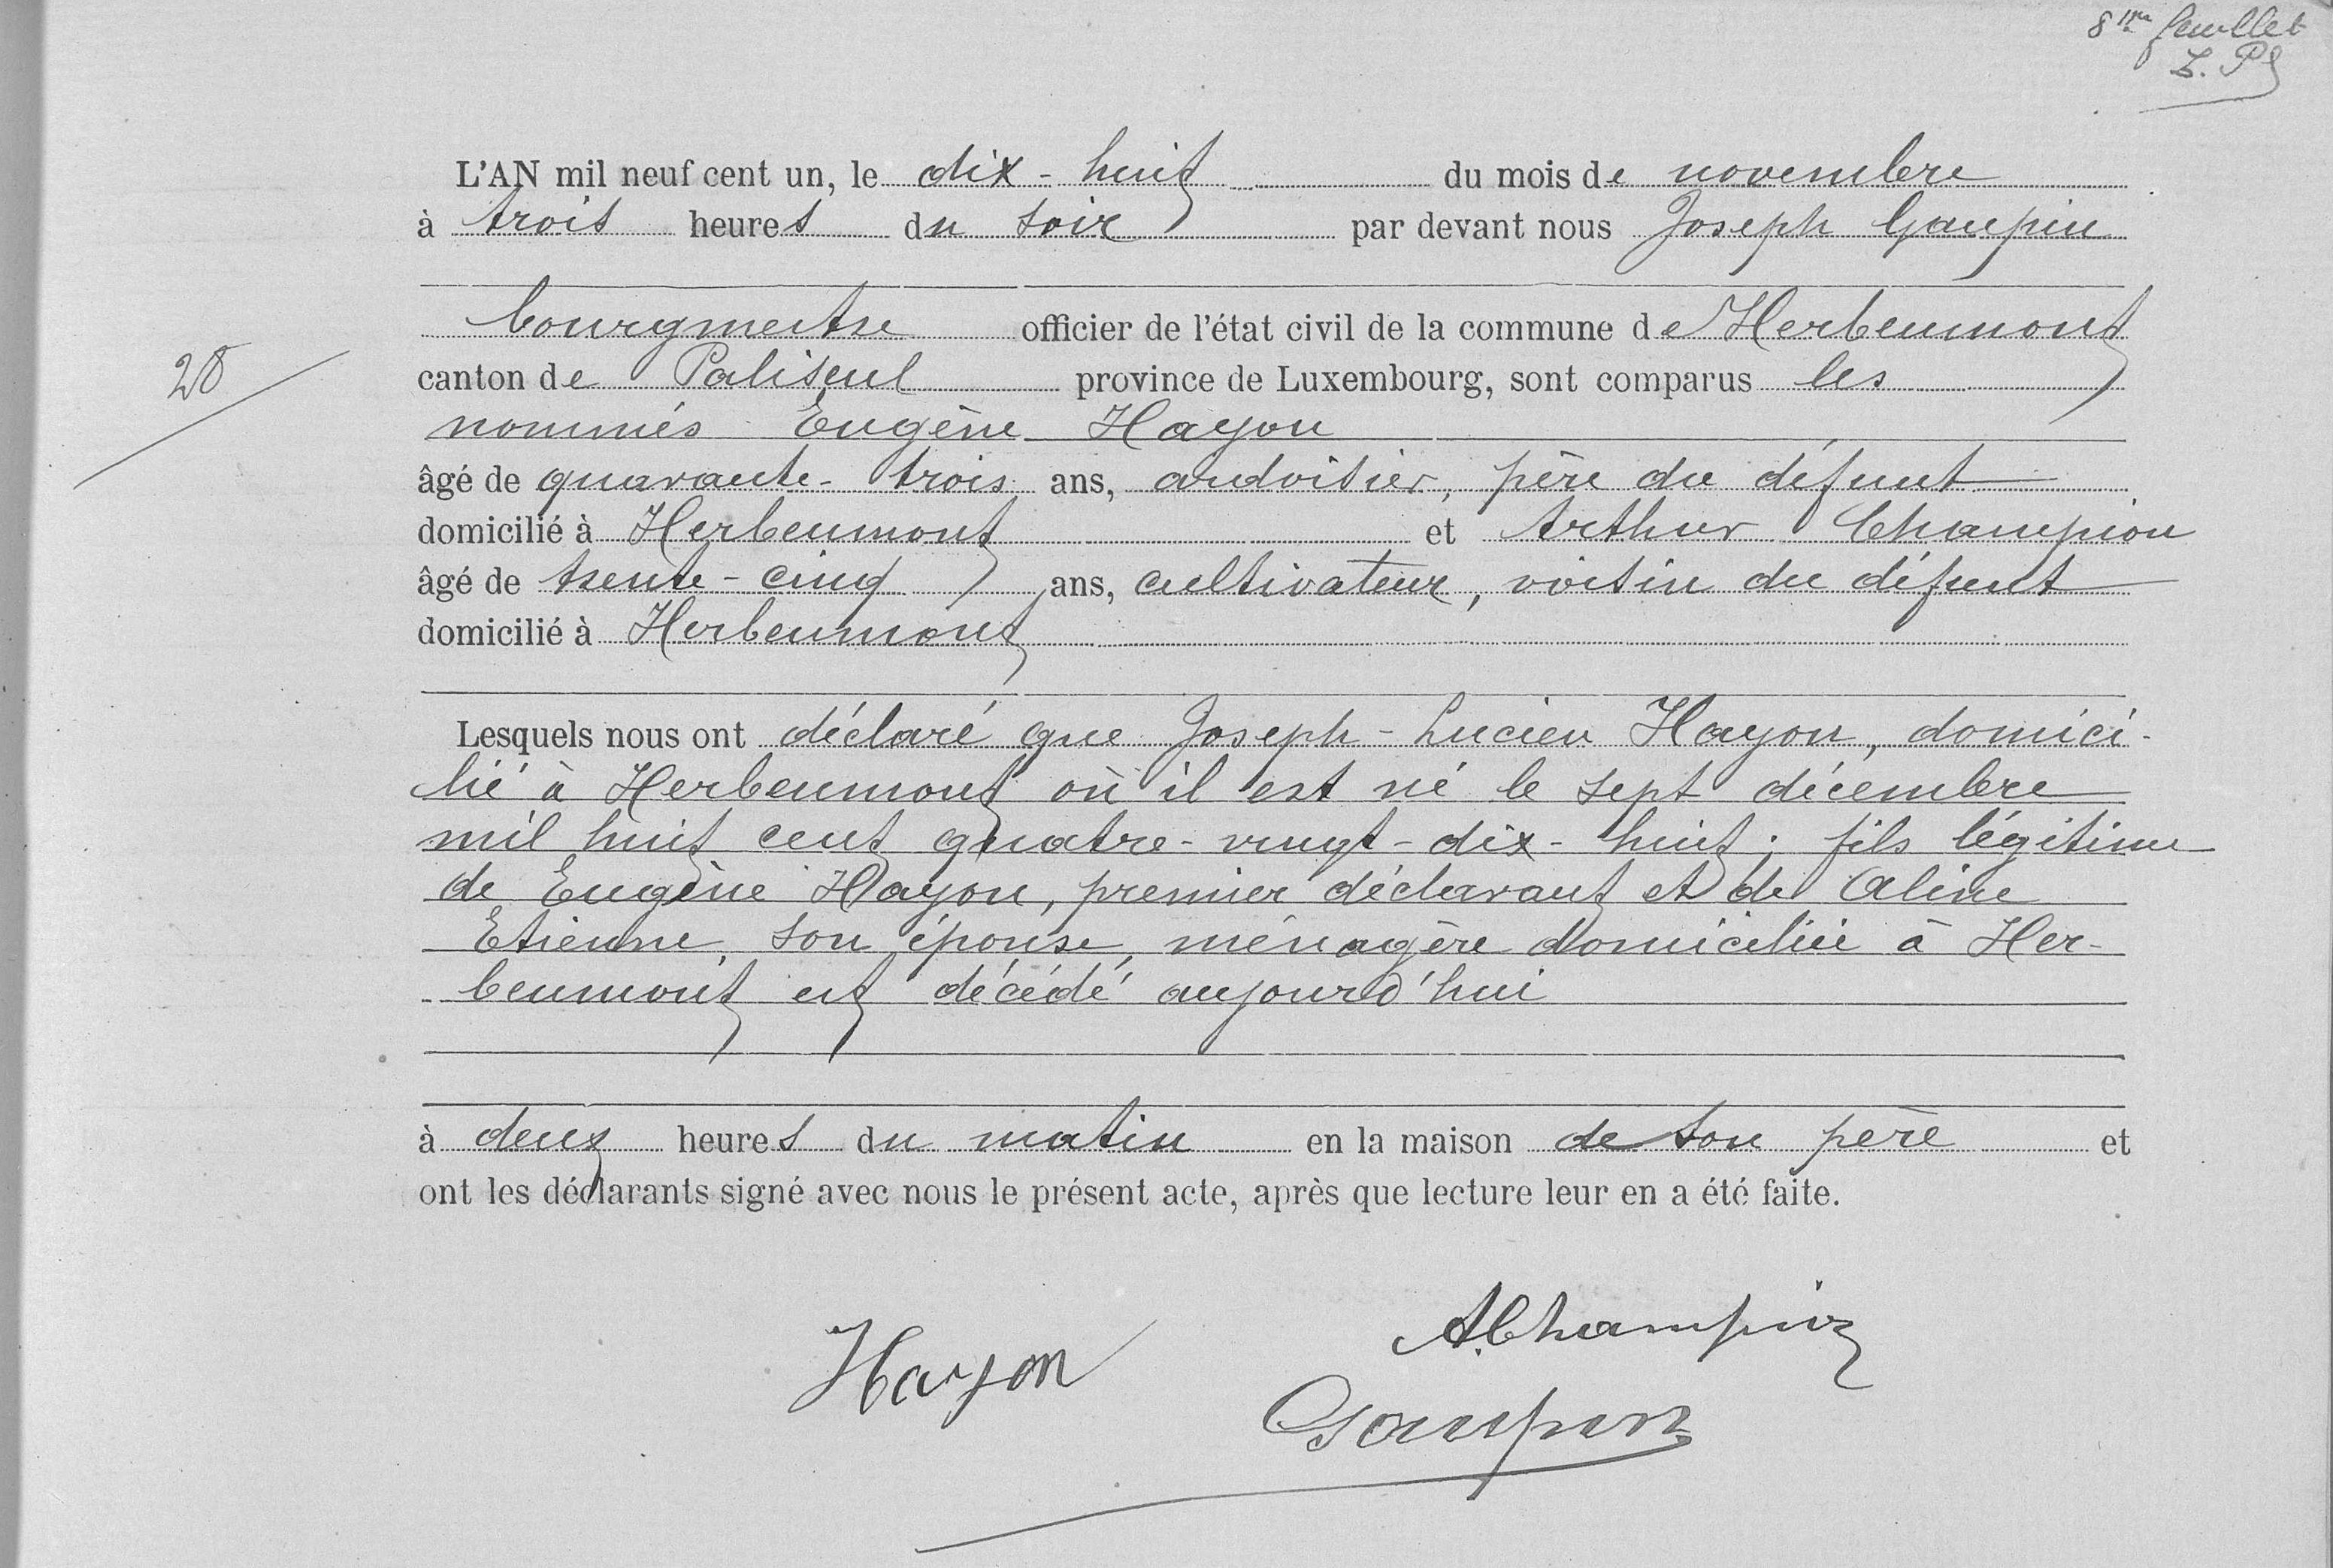 8me feuillet
L'AN mil neuf cent un, le dix-huit du mois de novembre
à trois heures du soir par devant nous Joseph Gaupin
bourgmestre officier de l'état civil de la commune de Herbeumont
20
canton de Paliseul province de Luxembourg, sont comparus les
nommés Eugène Hayon
âgé de quarante-trois ans, ardoisier, père du défunt
domicilié à Herbeumont et Arthur Champion
âgé de trente-cinq ans, cultivateur, voisin du défunt
domicilié à Herbeumont
Lesquels nous ont déclaré que Joseph-Lucien Hayon, domici-
lié à Herbeumont où il est né le sept décembre
mil huit cent quatre-vingt-dix-huit; fils légitime
de Eugène Hayon, premier déclarant et de Aline
Etienne, son épouse, ménagère domiciliée à Her-
beumont est décédé aujourd'hui
à deux heures du matin en la maison de son père et
ont les déclarants signé avec nous le présent acte, après que lecture leur en a été faite.
A.Champion
Hayon
Gaupin